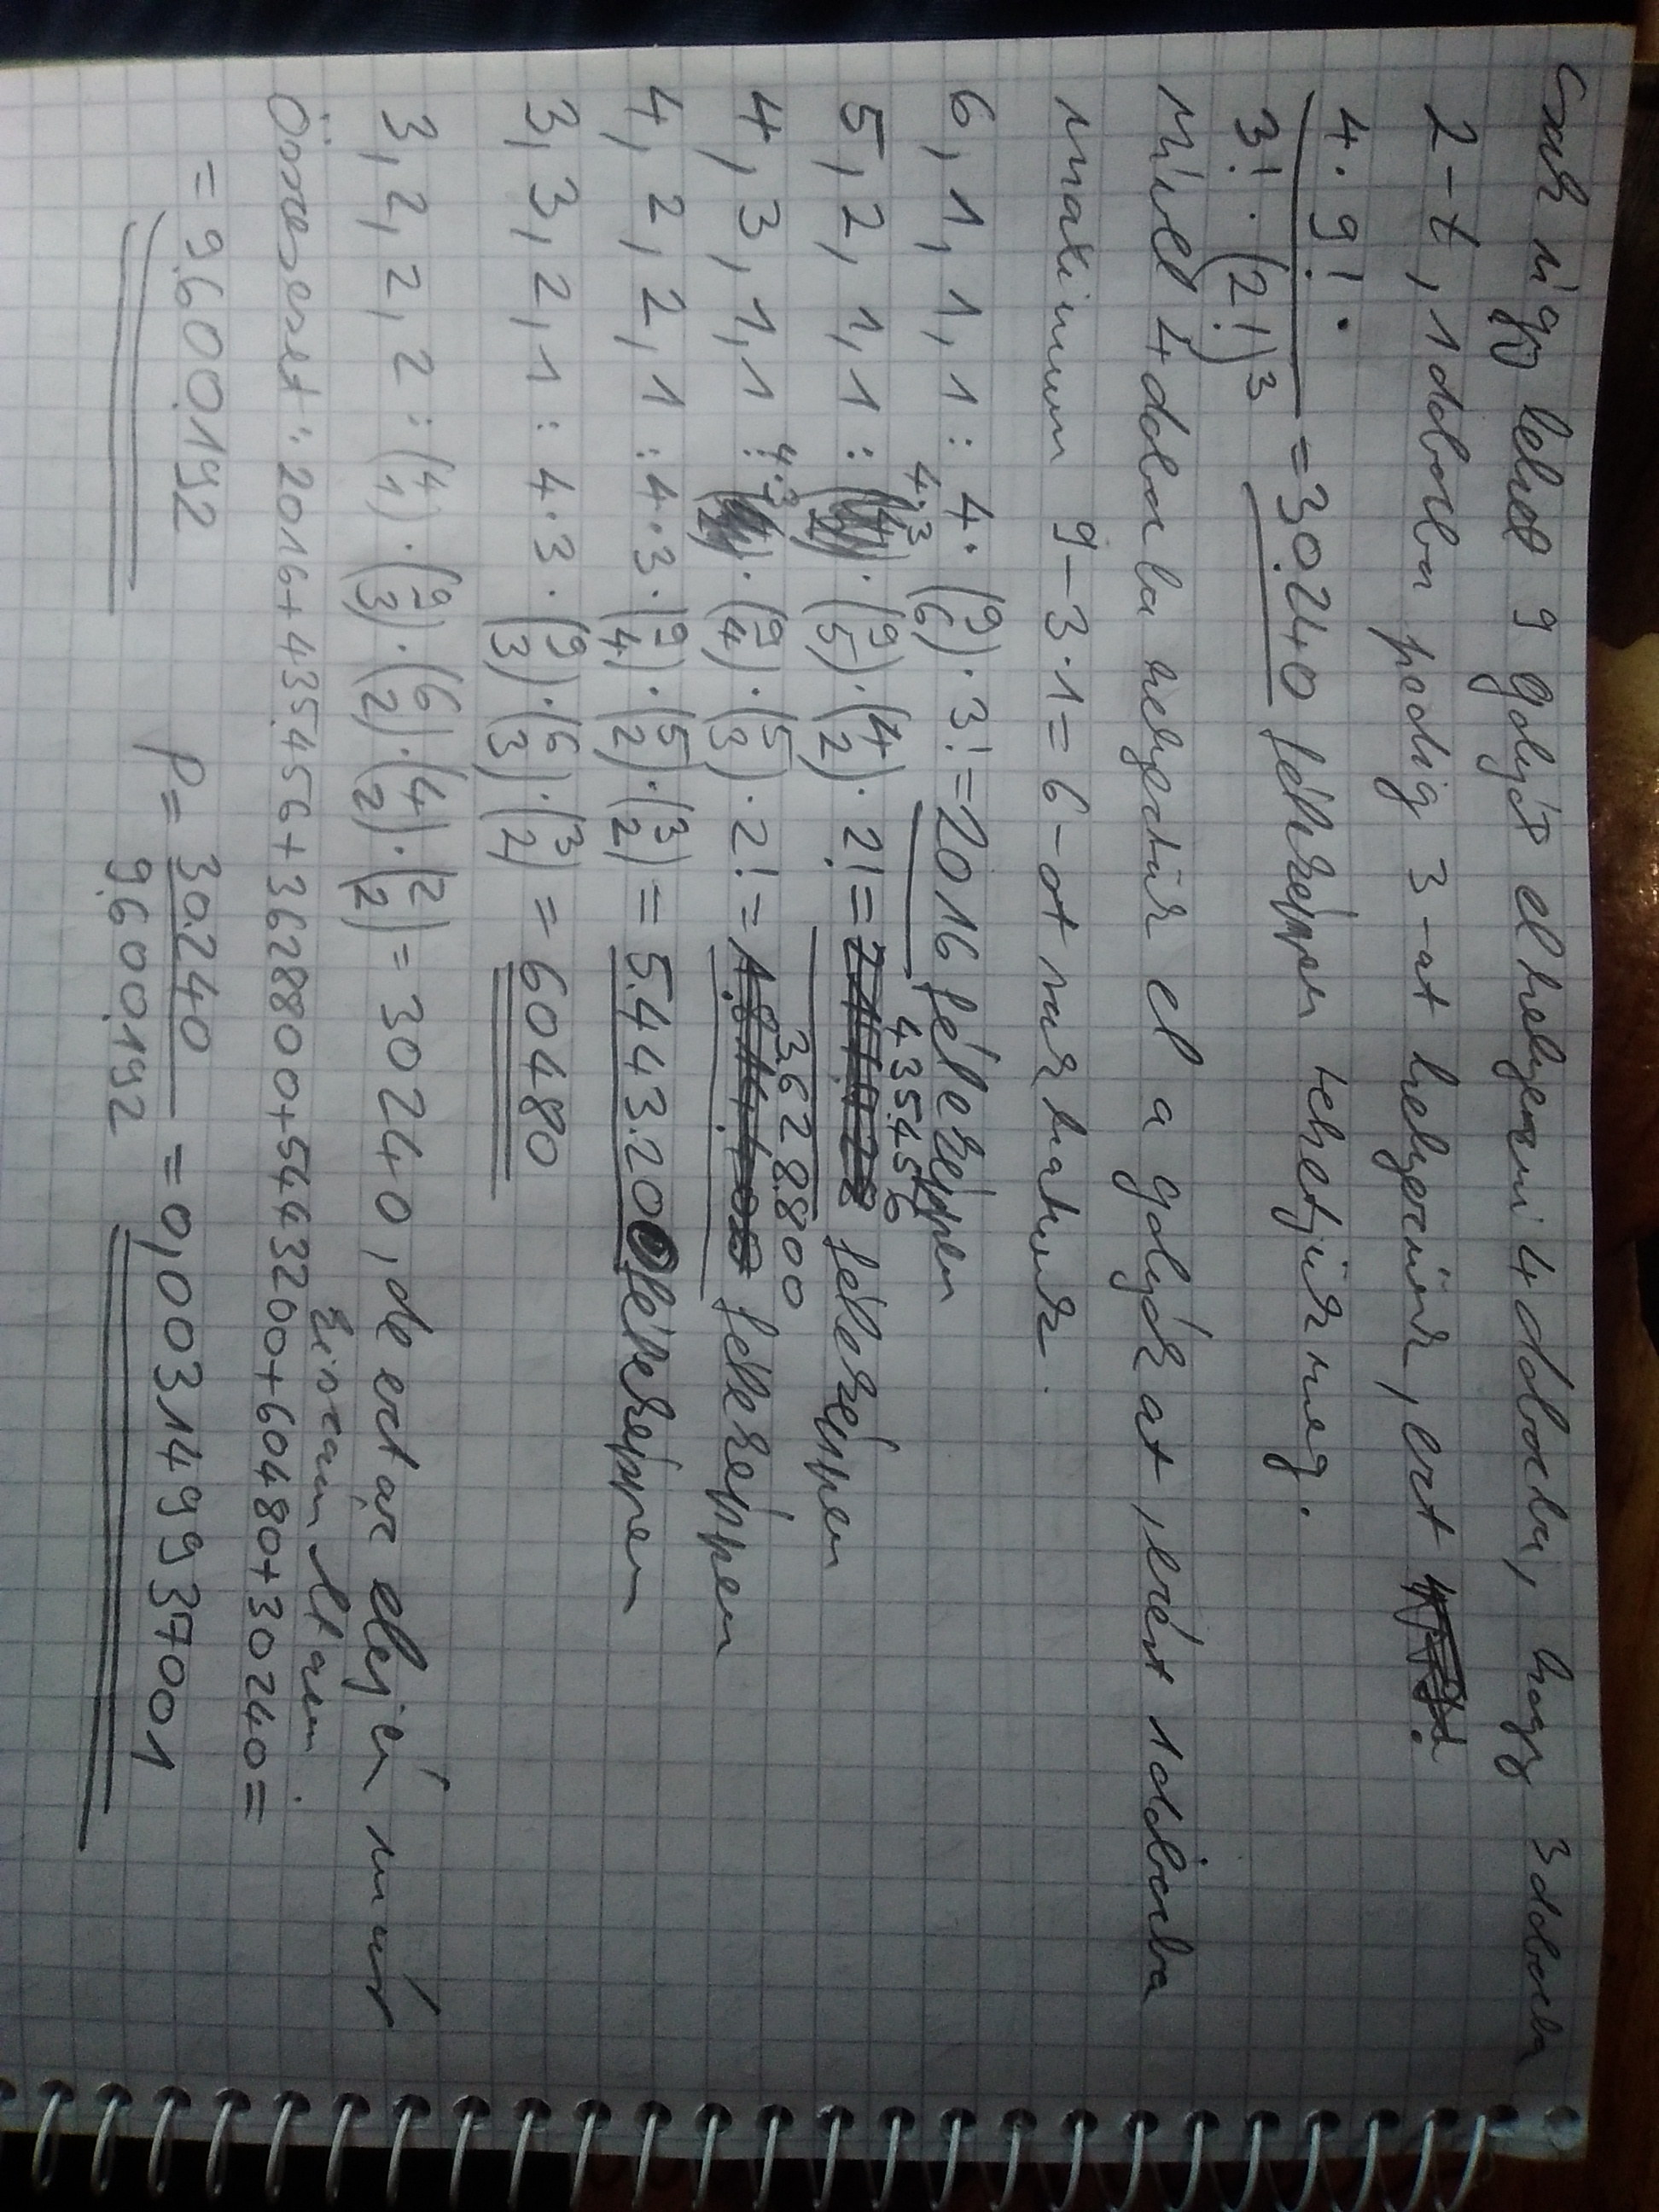 Csak úgy lehet 9 golyót elhelyezni 4 dobozba, hogy 3 dobozba
2-t, 1 dobozba pedig 3-at helyezünk, ezt
4·9!·
3!·(2!)³ = 30.240 féleképpen tehetjük meg.
Mivel 4 dobozba helyezünk el a golyókat, ezért 1 dobozba
maximum 9-3·1=6-ot rakhatunk.
6,1,1,1: 4·(9 6)·3! = 2016 féleképpen
5,2,1,1: 4·3·(9 5)·(4 2)·2! = 435456 féleképpen
4,3,1,1: 4·3·(9 4)·(5 3)·2! = 3.628.800 féleképpen
4,2,2,1: 4·3·(9 4)·(5 2)·(3 2) = 5.443.200 féleképpen
3,3,2,1: 4·3·(9 3)·(6 3)·(3 2) = 60480
3,2,2,2: (4 1)·(9 3)·(6 2)·(4 2)·(2 2) = 30240, de ezt az elején már
kiszámoltam.
Összeset: 2016+435456+3628800+5443200+60480+30240=
= 9.600.192
P = 30.240 / 9.600.192 = 0,003149937001